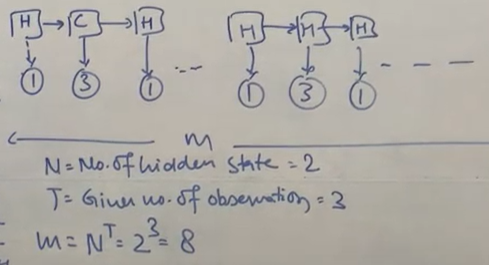 H C H H H H
1 3 1 1 3 1
m
N = No. of hidden state = 2
T = Given no. of observation = 3
m = N^T = 2^3 = 8